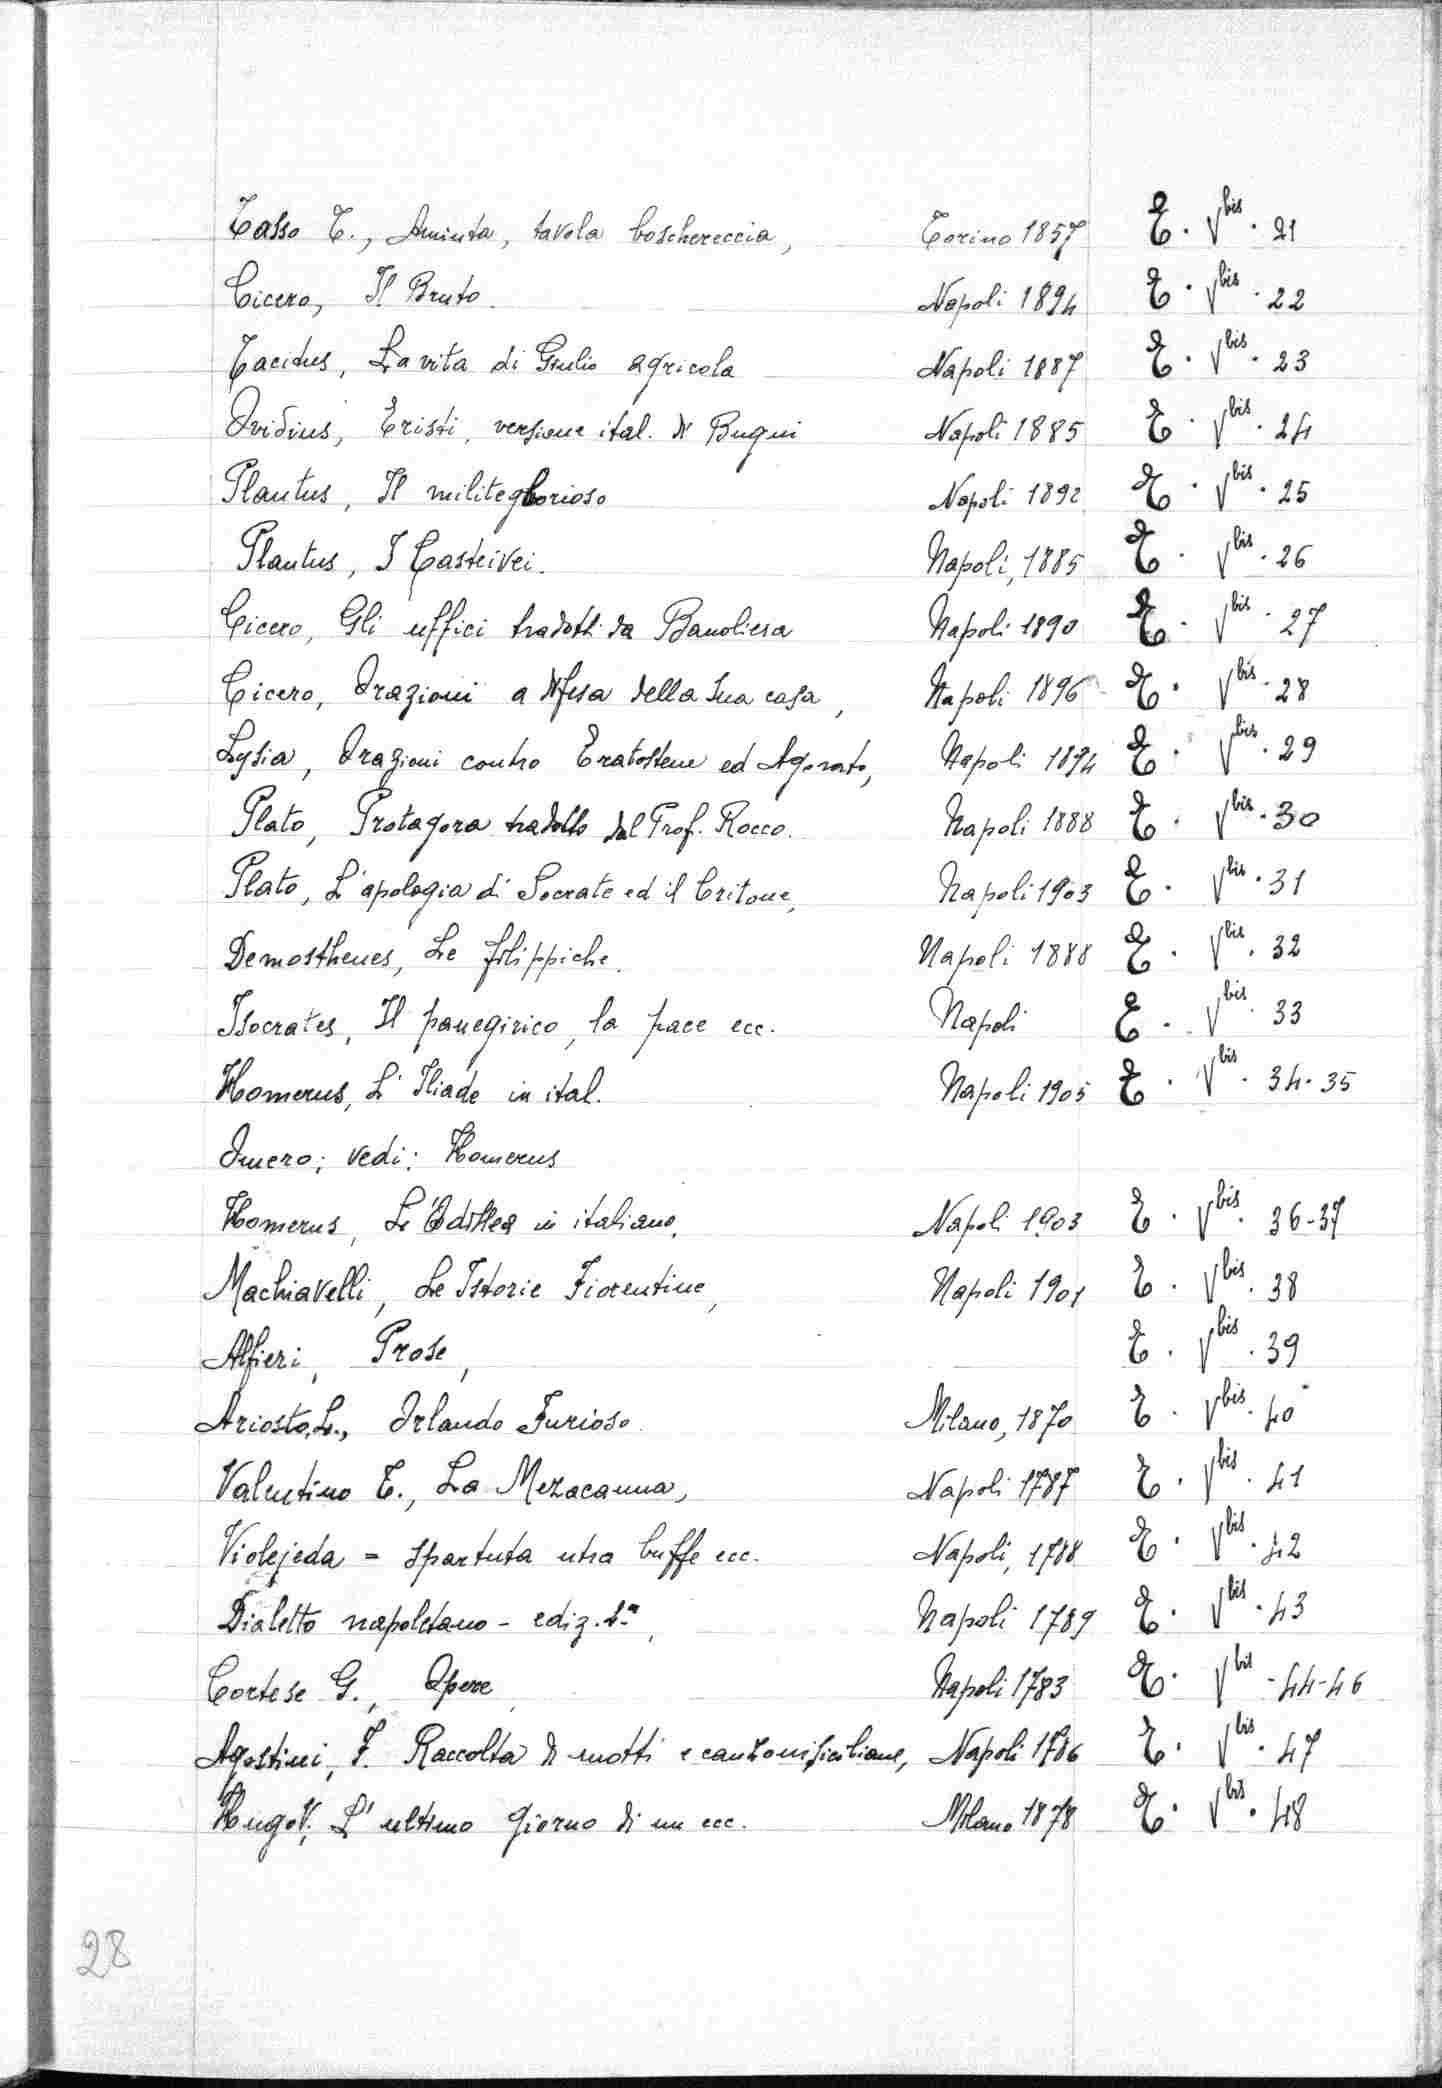 Tasso T., Aminta, tavola boschereccia, Torino 1857 E. V bis. 21
Cicero, Il Bruto. Napoli 1894 E. V bis. 22
Tacitus, La vita di Giulio agricola Napoli 1887 E. V bis. 23
Ovidius, Tristi, versione ital. di Bugni Napoli 1885 E. V bis. 24
Plautus, Il militeglorioso Napoli 1892 E. V bis. 25
Plautus, I Napoli, 1885 E. V bis. 26
Cicero, Gli uffici tradotti da Napoli 1890 E. V bis. 27
Cicero, Orazioni a difesa della sua casa, Napoli 1896 E. V bis. 28
Lysia, Orazioni contro Eratostene ed Agorato, Napoli 1894 E. V bis. 29
Plato, Protagora tradotto dal Prof. Rocco. Napoli 1888 E. V bis. 30
Plato, L'apologia di Socrate ed il Critone, Napoli 1903 E. V bis. 31
Demosthenes, Le filippiche. Napoli 1888 E. V bis. 32
Isocrates, Il panegirico, la pace ecc. Napoli E. V bis. 33
Homerus, L'Iliade in ital. Napoli 1905 E. V bis. 34. 35
Omero; vedi: Homerus
Homerus, L'Odissea in italiano. Napoli 1903 E. V bis. 36-37
Machiavelli, Le Istorie Fiorentine, Napoli 1901 E. V bis. 38
Alfieri, Prose, E. V bis. 39
Ariosto, L., Orlando Furioso. Milano, 1870 E. V bis. 40
Valentino T., La Mezacanna, Napoli 1787 E. V bis. 41
Violejeda = spartuta ntra buffe ecc. Napoli, 1788 E. V bis. 42
Dialetto napoletano - ediz. 2a, Napoli 1789 E. V bis. 43
Cortese G., Opere, Napoli 1783 E. V bis - 44-46
Agostini, F. Raccolta di motti e canzoni siciliane, Napoli 1786 E. V bis. 47
Hugo V., L'ultimo giorno di un ecc. Milano 1878 E. V bis. 48
28